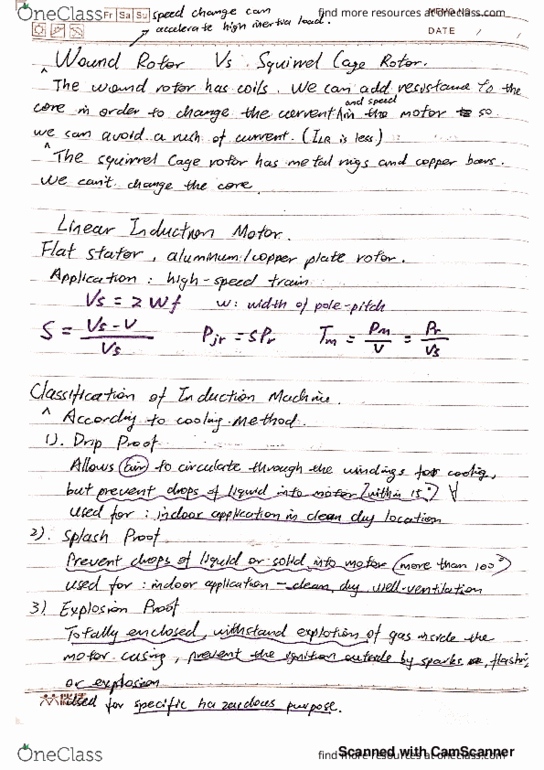 OneClass Fr Sa Su speed change can find more resources at oneclass.com
accelerate high inertia load. DATE / /
^ Wound Rotor Vs. Squirrel Cage Rotor.
The wound rotor has coils. We can add resistance to the
core in order to change the current and speed in the motor so
we can avoid a rush of current. (ILR is less)
^ The squirrel Cage rotor has metal rigs and copper bars.
We can't change the core.
Linear Induction Motor.
Flat stator, aluminum/copper plate rotor.
Application : high-speed train
Vs = 2 w f w: width of pole-pitch
S = (Vs - V) / Vs Pjr = sPr Tm = Pm / V = Pr / Vs
Classification of Induction Machine.
^ According to cooling method.
1). Drip Proof
Allows air to circulate through the windings for cooling,
but prevent drops of liquid into motor (within 15°)
used for : indoor application in clean dry location
2). Splash Proof
Prevent drops of liquid or solid into motor (more than 100°)
used for : indoor application - clean, dry well-ventilation
3) Explosion Proof
Totally enclosed, withstand explotion of gas inside the
motor casing, prevent the ignition outside by sparks, flashing
or explosion
used for specific hazardous purpose.
OneClass find more resources at oneclass.com
Scanned with CamScanner